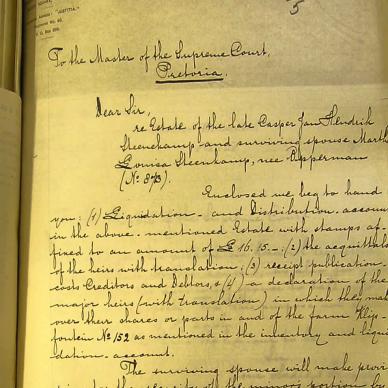 Address: "JUSTITIA."
5
To the Master of the Supreme Court,
Pretoria.
Dear Sir,
re Estate of the late Casper Jan Hendrik
Steenekamp and surviving spouse Marth
Louisa Steenkamp, nee Opperman
(No 873).
Enclosed we beg to hand
you: (1) Liquidation - and Distribution - account
in the above - mentioned Estate with stamps af-
fixed to an amount of £ 16.15.-, (2) the acquittals
of the heirs with translation; (3) receipt publication-
costs Creditors and Debtors, & (4) a declaration of the
major heirs (with translation) in which they make
over their shares or parts in and of the farm Klip-
fontein No 152 as mentioned in the inventory and liqui-
dation - account.
The surviving spouse will make provi
the minors portion